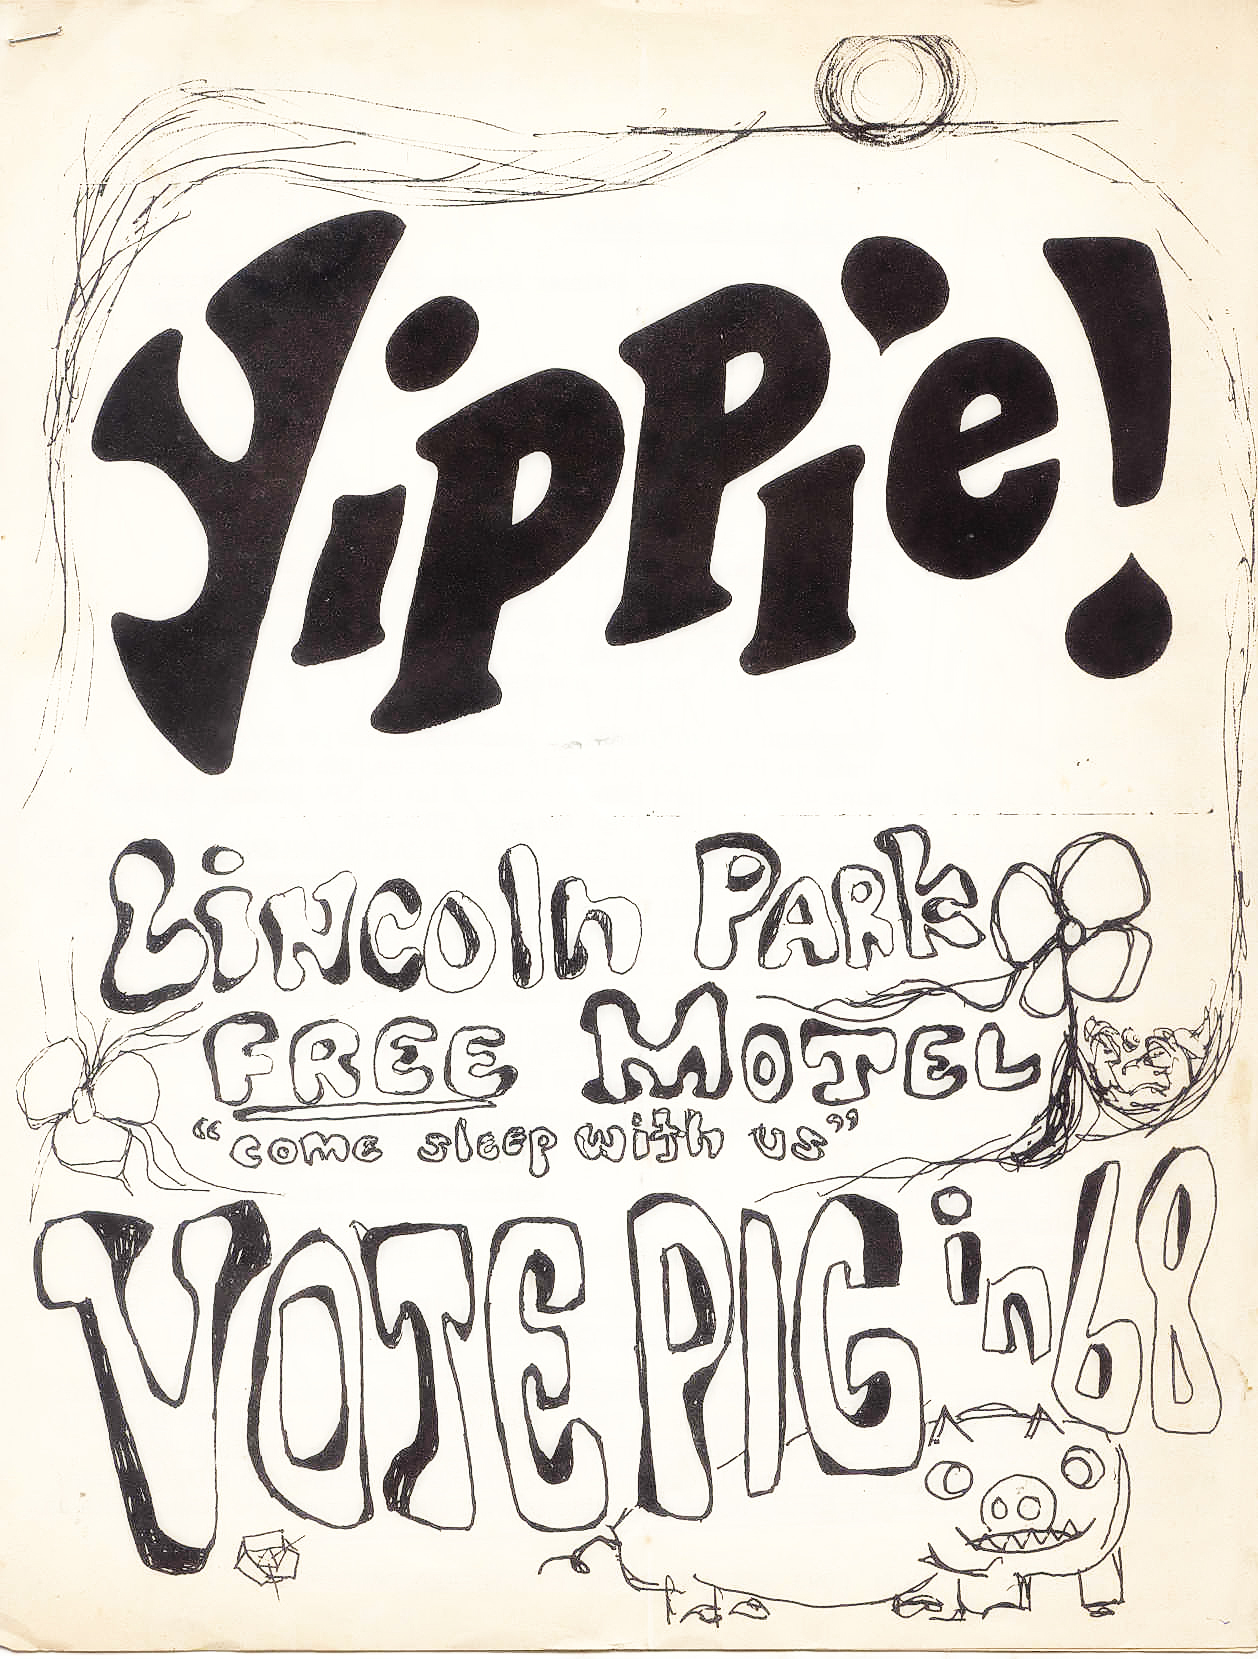 Yippie!
Lincoln Park
FREE Motel
"come sleep with us"
VOTE PIG in 68